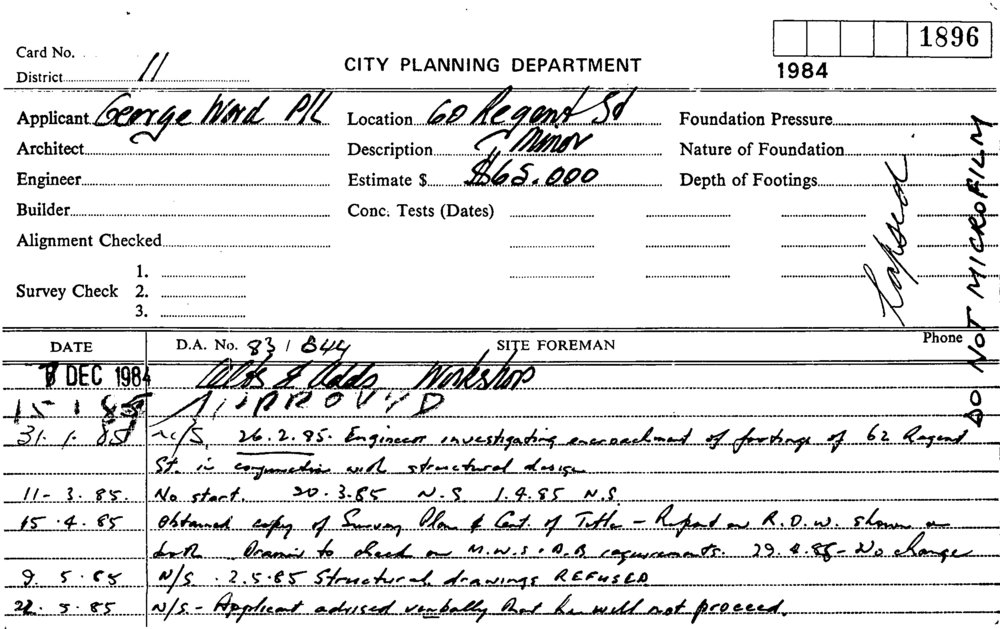 1896
Card No.
District 11
CITY PLANNING DEPARTMENT
1984
Applicant George Ward P/L Location 60 Regent St Foundation Pressure
Architect Description Minor Nature of Foundation
Engineer Estimate $ $65.000 Depth of Footings
Builder Conc. Tests (Dates)
Alignment Checked
1.
Survey Check 2.
3.
Lapsed
DO NOT MICROFILM
DATE D.A. No. 83/844 SITE FOREMAN Phone
DEC 1984 Alts & Adds Workshop
15.1.85 APPROVED
31.1.85 N/S 26.2.85. Engineer investigating encroachment of footings of 62 Regent
St. in conjunction with structural design
11-3.85. No start. 20.3.85 N.S 1.4.85 N.S.
15.4.85 Obtained copy of Survey Plan & Cert. of Title - Report on R.O.W. shown on
both to check on M.W.S.&D.B requirements. 29.4.85 - No change
9.5.85 N/S. 2.5.85 Structural drawings REFUSED
22.5.85 N/S - Applicant advised verbally that he will not proceed.